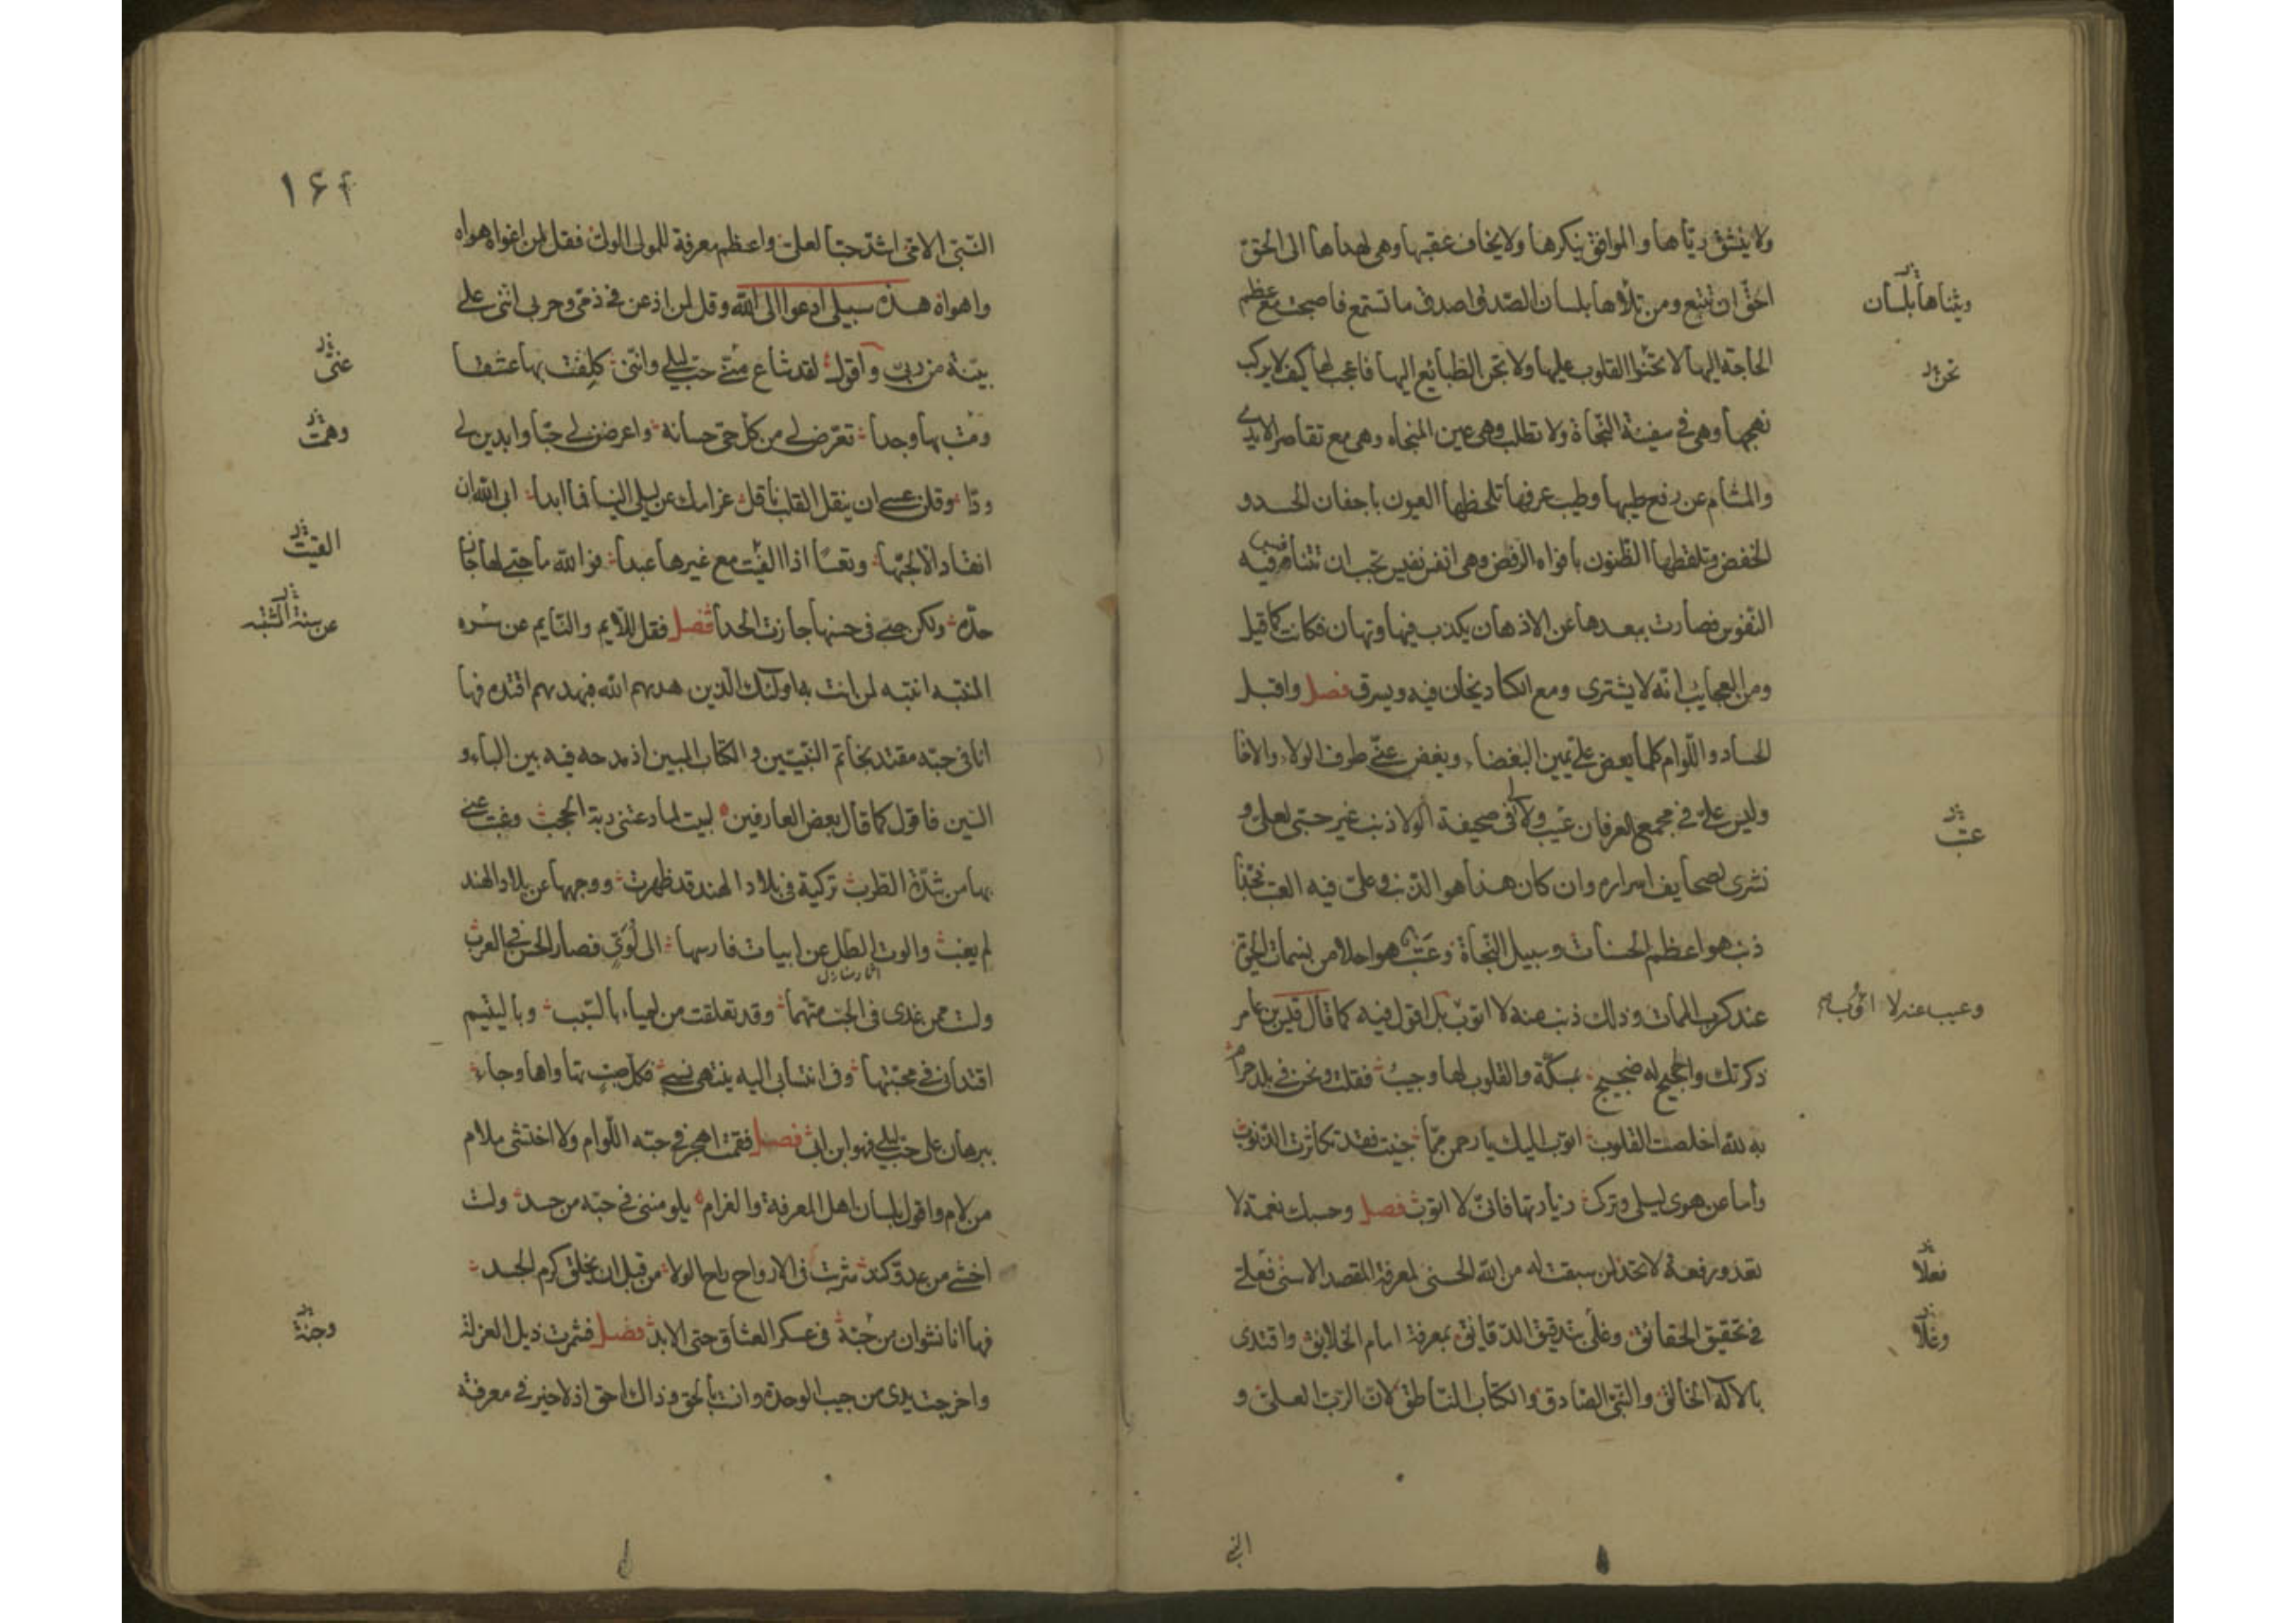 ولا ينشق ريّاها والموافق ينكرها ولا يخاف عقبها وهي لهداها الى الحق
احق ان تتبع ومن تلاها بلسان الصدق اصدق ما تستمع فاصبحت مع عظم
وثناها بلسان
الحاجة اليها لا تحننوا القلوب عليها ولا تحن الطبائع اليها فاعجب لها كيف لا يركب
تحن
نهجها وهي في سفينة النجاة ولا تطلب وهي عين المنجاه وهي مع تقاصر الايدي
والمشام عن رفع طيبها وطيب عرفها تلحظها العيون باجفان الحدود
الخفض وتلفظها الظنون بافواه الرفض وهي انفس نفيس يجب ان تتنافس فيه
النفوس فصارت ببعدها عن الاذهان يكذب فيها وتهان فكانت كما قيل
ومن العجايب انه لا يشترى ومع الكساد يخان فيه ويسرق فصل واقبل
الحساد واللوام كلما يعض علىّ يمين البغضاء ويغض عنّي طرف الولاء والاخاء
وليس علىّ في مجمع العرفان عيب ولا لى في صحيفة الولا ذنب غير حبّي لعليّ و
عتب
نشرى لصحايف اسراره وان كان هذا هو الذنب وعلىّ فيه العتب فحبّذا
ذنب هو اعظم الحسنات وسبيل النجاة وعتب هو احلا من نسمات الحيوة
عند كرب الممات وذلك ذنب منه لا اتوب بل اقول فيه كما قال قيس بن عامر
وعيب عنه لا اؤب
ذكرتك والحجيج له ضجيج بمكّة والقلوب لها وجيب فقلت ونحن في بلد حرام
به لله اخلصت القلوب اتوب اليك يا رحمن ممّا جنيت فقد تكاثرت الذنوب
وأما عن هوى ليلى وتركى زيارتها فانّى لا اتوب فصل وحسبك نعمة لا
تعد ورفعة لا تحد لمن سبقت له من الله الحسنى لمعرفة المقصد الاسنى فعلى
فعلا
في تحقيق الحقائق وغلى بتدقيق الدقايق بمعرفة امام الخلايق واقتدى
وغلا
بالاله الخالق والنبيّ الصادق والكتاب الناطق لانّ الربّ العليّ و
النبي
١٦٤
النبّى الامّى اشدّ حبّا لعلىّ واعظم معرفة للمولى الولىّ فقل لمن اغواه هواه
واهواه هذه سبيلي ادعوا الى الله وقل لمن اذعن في ذمّي وحربى انّني على
بيّنة من ربّى وأقول لقد شاع عنّي حبّ ليلى وانّني كلفت بها عشقا
عنّي
وهمت بها وجدا تعرّض لي من كل حيّ حسانه واعرضن لي حبّا وابدين لي
وهمت
ودّا وقلن عسى ان ينقل القلب ناقل غرامك عن ليلى الينا فما ابدا ابى الله ان
انقاد الّا لحبّها وتعسا اذا الفيت مع غيرها عبدا فو الله ما حبّي لها جاز
الفيت
حدّه ولكن حبّي في حسنها جازت الحدا فصل فقل للّايم والنايم عن سره
عن سنة الشبه
المنتبه انتبه لمن انت به اولئك الّذين هديهم الله فبهديهم اقتده فها
انا في حبّه مقتد بخاتم النبيّين والكتاب المبين اذ مدحه فيه بين الباء و
السين فاقول كما قال بعض العارفين لبيت لما دعتني ربة الحجب وغبت عني
بها من شدّة الطرب تركية في بلاد الهند قد ظهرت ووجهها عن بلاد الهند
لم يغب
ولست ممن غدى في الحبّ متهما وقد تعلقت من لمياء بالسبب وباليتيم
اقتدائي في محبّتها وفي انتسابي اليه ينتهي نسبي فكل صبّ تباواها وجاء
ببرهان على حبّ ليلى فهو ابن ابى فصل فقمت اهجر في حبّه اللّوام ولا اختشى ملام
من لام واقول بلسان اهل المعرفة والغرام يلومنني في حبّه من حسد ولست
اخشي من عدوّ كند شربت في الارواح راح الولا من قبل ان يخلق كرم الجسد
فها انا نشوان من حبّه في عسكر العشاق حتى الابد فصل فشمرت ذيل العزلة
وجنة
واخرجت يدى من جيب الوحدة وانست بالحق وذاك احق اذ لا خير في معرفة